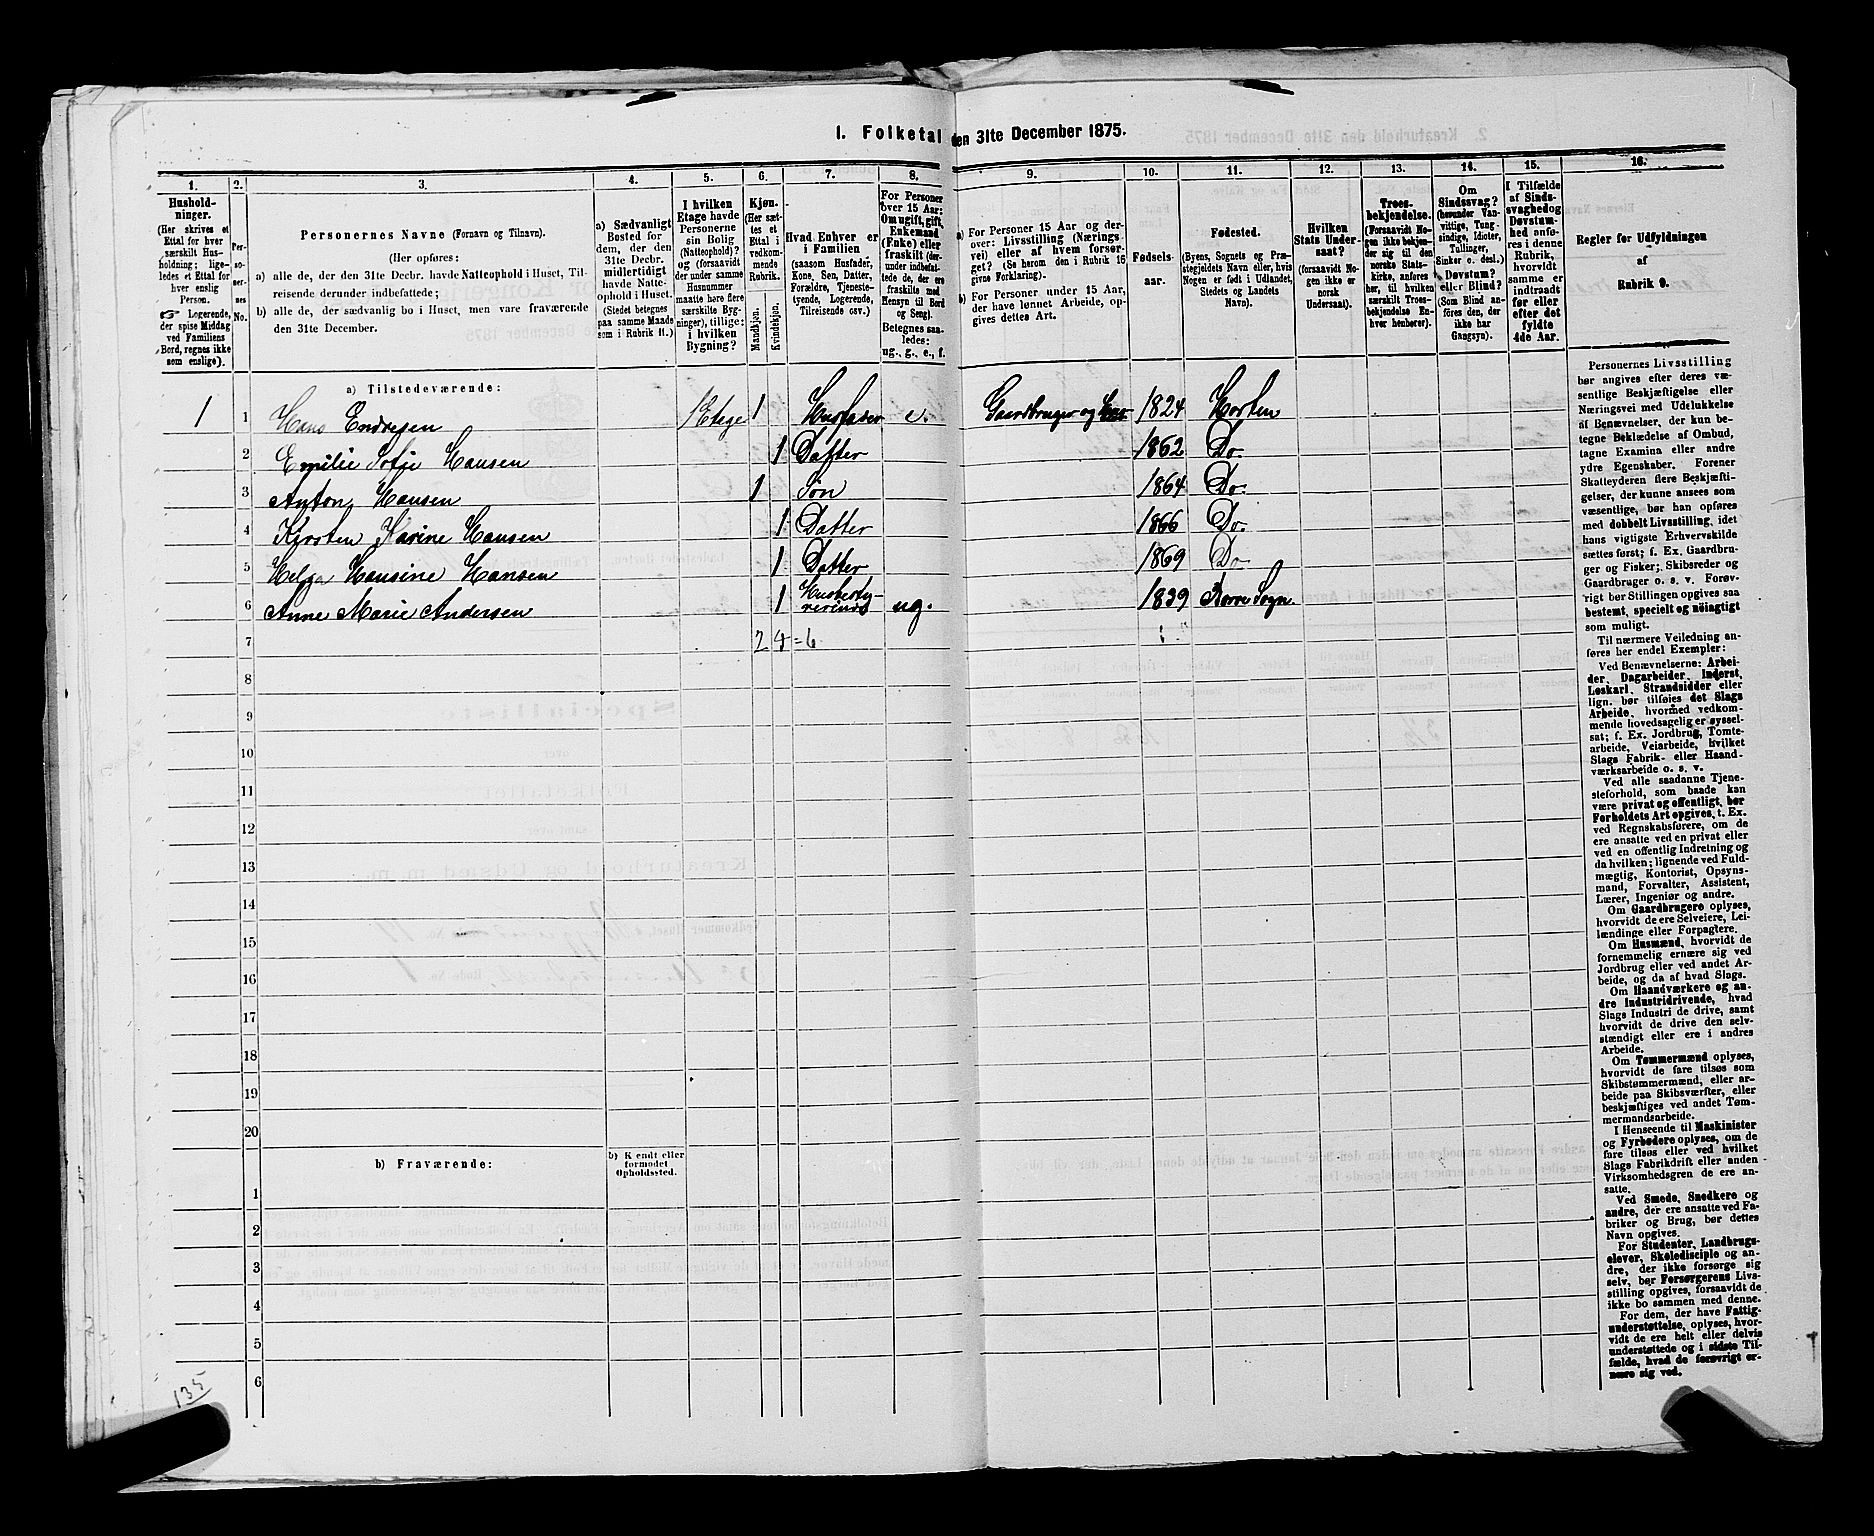 1. Folketal den 31te December 1875.
1. 2. 3. 4. 5. 6. 7. 8. 9. 10. 11. 12. 13. 14. 15. 16.
Husholdninger.
(Her skrives et
Ettal for hver
særskilt Husholdning;
ligeledes et Ettal for
hver enslig
Person.
☞ Logerende,
der spise Middag
ved Familiens
Bord, regnes ikke
som enslige).
Personernes No.
Personernes Navne (Fornavn og Tilnavn).
(Her opføres:
a) alle de, der den 31te Decbr. havde Natteophold i Huset, Tilreisende derunder indbefattede;
b) alle de, der sædvanlig bo i Huset, men vare fraværende
den 31te December.
a) Sædvanligt
Bosted for
dem, der den
31te Decbr.
midlertidigt
havde Natteophold i Huset.
(Stedet betegnes
paa samme Maade
som i Rubrik 11.)
I hvilken
Etage havde
Personerne
sin Bolig
(Natteophold)?
og (forsaavidt
der under samme
Husnummer
maatte høre flere
særskilte Bygninger), tillige:
i hvilken
Bygning?
Kjøn.
(Her sættes et
Ettal i
vedkommende
Rubrik.
Mandkjøn.
Kvindekjøn.
Hvad Enhver er
i Familien
(saasom Husfader,
Kone, Søn, Datter,
Forældre, Tjenestetyende, Logerende,
Tilreisende osv.)
For Personer
over 15 Aar:
Om ugift, gift,
Enkemand
(Enke) eller
fraskilt (derunder indbefattede de, der ere
fraskilte med
Hensyn til Bord
og Seng).
Betegnes saaledes:
ug., g., e., f.
a) For Personer 15 Aar og derover: Livsstilling (Næringsvei) eller af hvem forsørget? (Se herom den i Rubrik 16
givne Forklaring).
b) For Personer under 15 Aar,
der have lønnet Arbeide, opgives dettes Art.
Fødselsaar.
Fødested.
(Byens, Sognets og Præstegjeldets Navn eller, hvis
Nogen er født i Udlandet,
Stedets og Landets
Navn).
Hvilken
Stats Undersaat?
(forsaavidt Nogen ikke er
norsk
Undersaat).
Troesbekjendelse.
(Forsaavidt Nogen ikke bekjender sig til den
norske Statskirke, anføres
her, til hvilken
særskilt Troesbekjendelse Enhver henhører).
Om
Sindssvag?
(herunder Vanvittige, Tungsindige, Idioter,
Tullinger,
Sinker o. desl.)
Døvstum?
eller Blind?
(Som Blind anføres den, der
ikke har
Gangsyn).
I Tilfælde
af Sindssvaghed og
Døvstumhed anføres i denne
Rubrik,
hvorvidt
samme er
indtraadt
før eller
efter det
fyldte
4de Aar.
Regler for Udfyldningen
af
Rubrik 9.
a) Tilstedeværende:
1 1 Hans Endresen 1 Etage 1 Husfader e. Gaardbruger og 1824 Horten
2 Emilie Sofie Hansen 1 Datter 1862 Do
3 Anton Hansen 1 Søn 1864 Do.
4 Kirsten Karine Hansen 1 Datter 1866 Do.
5 Helga Hansine Hansen 1 Datter 1869 Do
6 Anne Marie Andersen 1 Husbestyrerinde ug. 1839 Borre Sogn.
7 2 4 = 6
8
9
10
11
12
13
14
15
16
17
18
19
20
b) Fraværende:
b) Kjendt eller
formodet
Opholdssted.
1
2
3
4
5
6
135
Personernes Livsstilling
bør angives efter deres væsentlige Beskjæftigelse eller
Næringsvei med Udelukkelse
af Benævnelser, der kun betegne Beklædelse af Ombud,
tagne Examina eller andre
ydre Egenskaber. Forener
Skatteyderen flere Beskjæftigelser, der kunne ansees som
væsentlige, bør han opføres
med dobbelt Livsstilling, idet
hans vigtigste Erhvervskilde
sættes først; f. Ex. Gaardbruger og Fisker; Skibsreder og
Gaardbruger o. s. v. Forøvrigt bør Stillingen opgives saa
bestemt, specielt og nøiagtigt
som muligt.
Til nærmere Veiledning anføres her endel Exempler:
Ved Benævnelserne: Arbeider, Dagarbeider, Inderst,
Løskarl, Strandsidder eller
lign. bør tilføies det Slags
Arbeide, hvormed vedkommende hovedsagelig er sysselsat; f. Ex. Jordbrug, Tomtearbeide, Veiarbeide, hvilket
Slags Fabrik- eller Haandværksarbeide o. s. v.
Ved alle saadanne Tjenesteforhold, som baade kan
være privat og offentligt, bør
Forholdets Art opgives, t. Ex.
ved Regnskabsførere, om de
ere ansatte ved en privat eller
ved en offentlig Indretning og
da hvilken; lignende ved Fuldmægtig, Kontorist, Opsynsmand, Forvalter, Assistent,
Lærer, Ingeniør og andre.
Om Gaardbrugere oplyses,
hvorvidt de ere Selveiere, Leilændinge eller Forpagtere.
Om Husmænd, hvorvidt de
fornemmelig ernære sig ved
Jordbrug eller ved andet Arbeide, og da af hvad Slags.
Om Haandværkere og andre Industridrivende, hvad
Slags Industri de drive, samt
hvorvidt de drive den selvstændigt eller ere i andres
Arbeide.
Om Tømmermænd oplyses,
hvorvidt de fare tilsøs som
Skibstømmermænd, eller arbeide paa Skibsværfter, eller
beskjæftiges ved andet Tømmermandsarbeide.
I Henseende til Maskinister
og Fyrbødere oplyses, om de
fare tilsøs eller ved hvilket
Slags Fabrikdrift eller anden
Virksomhedsgren de ere ansatte.
Ved Smede, Snedkere og
andre, der ere ansatte ved Fabriker og Brug, bør dettes
Navn opgives.
For Studenter, Landbrugselever, Skoledisciple og andre, der ikke forsørge sig
selv, bør Forsørgerens Livsstilling opgives, forsaavidt de
ikke bo sammen med denne.
For dem, der have Fattigunderstøttelse, oplyses, hvorvidt de ere helt eller delvis
understøttede og i sidste Tilfælde, hvad de forøvrigt ernære sig ved.